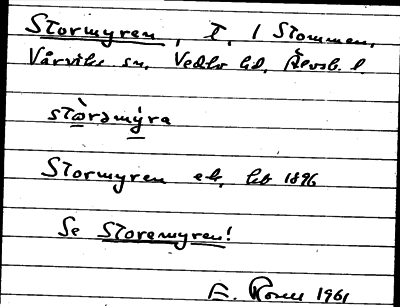 Stormyren, T, 1 Stommen,
Vårvik sn, Vedbo hd, Älvsb. l.
stòrəmýra
Stormyren ek, lsb 1896
Se Storemyren!
1961